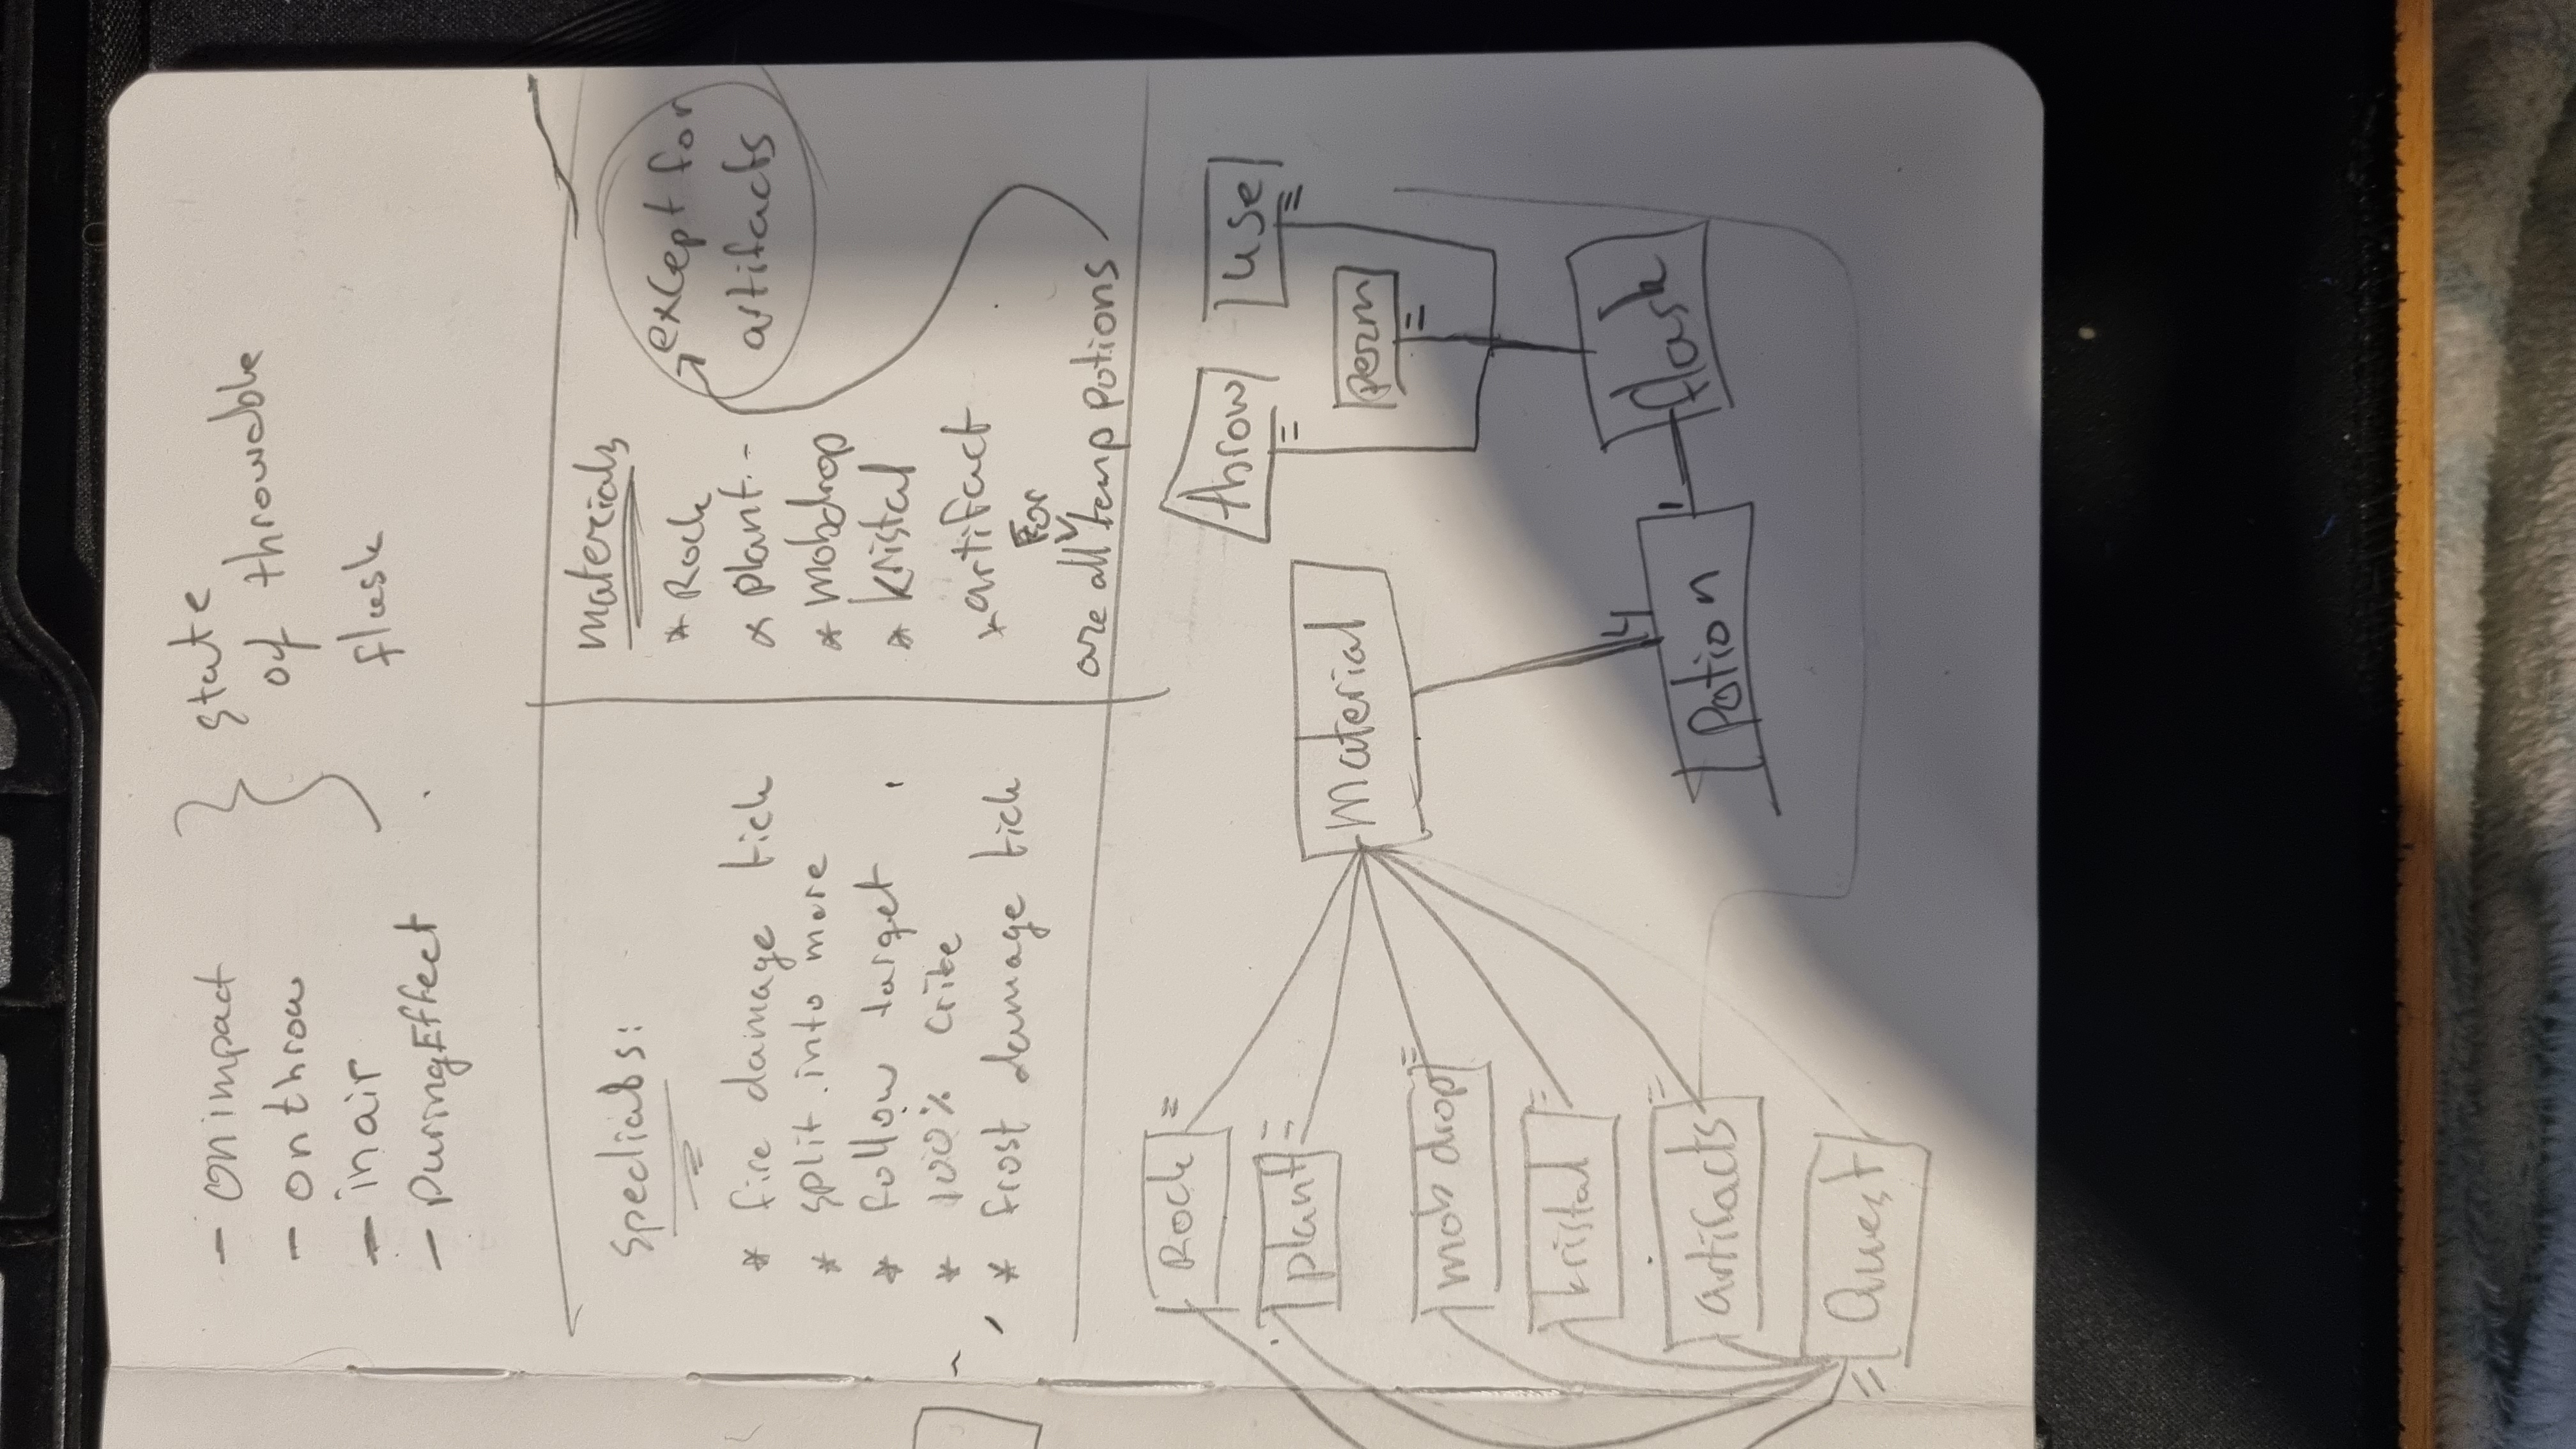 - onimpact
- onthrow
- inair
- DuringEffect
state
of throwable
flask
specials:
* fire damage tick
* split into more
* follow target
* 100% crite
* frost damage tick
materials
* Rock
* plant
* mobdrop
* kristal
* artifact
For
are all temp potions
except for
artifacts
Rock
plant
mob drop
kristal
artifacts
Quest
Material
throw
use
perm
4
Potion
1
flask